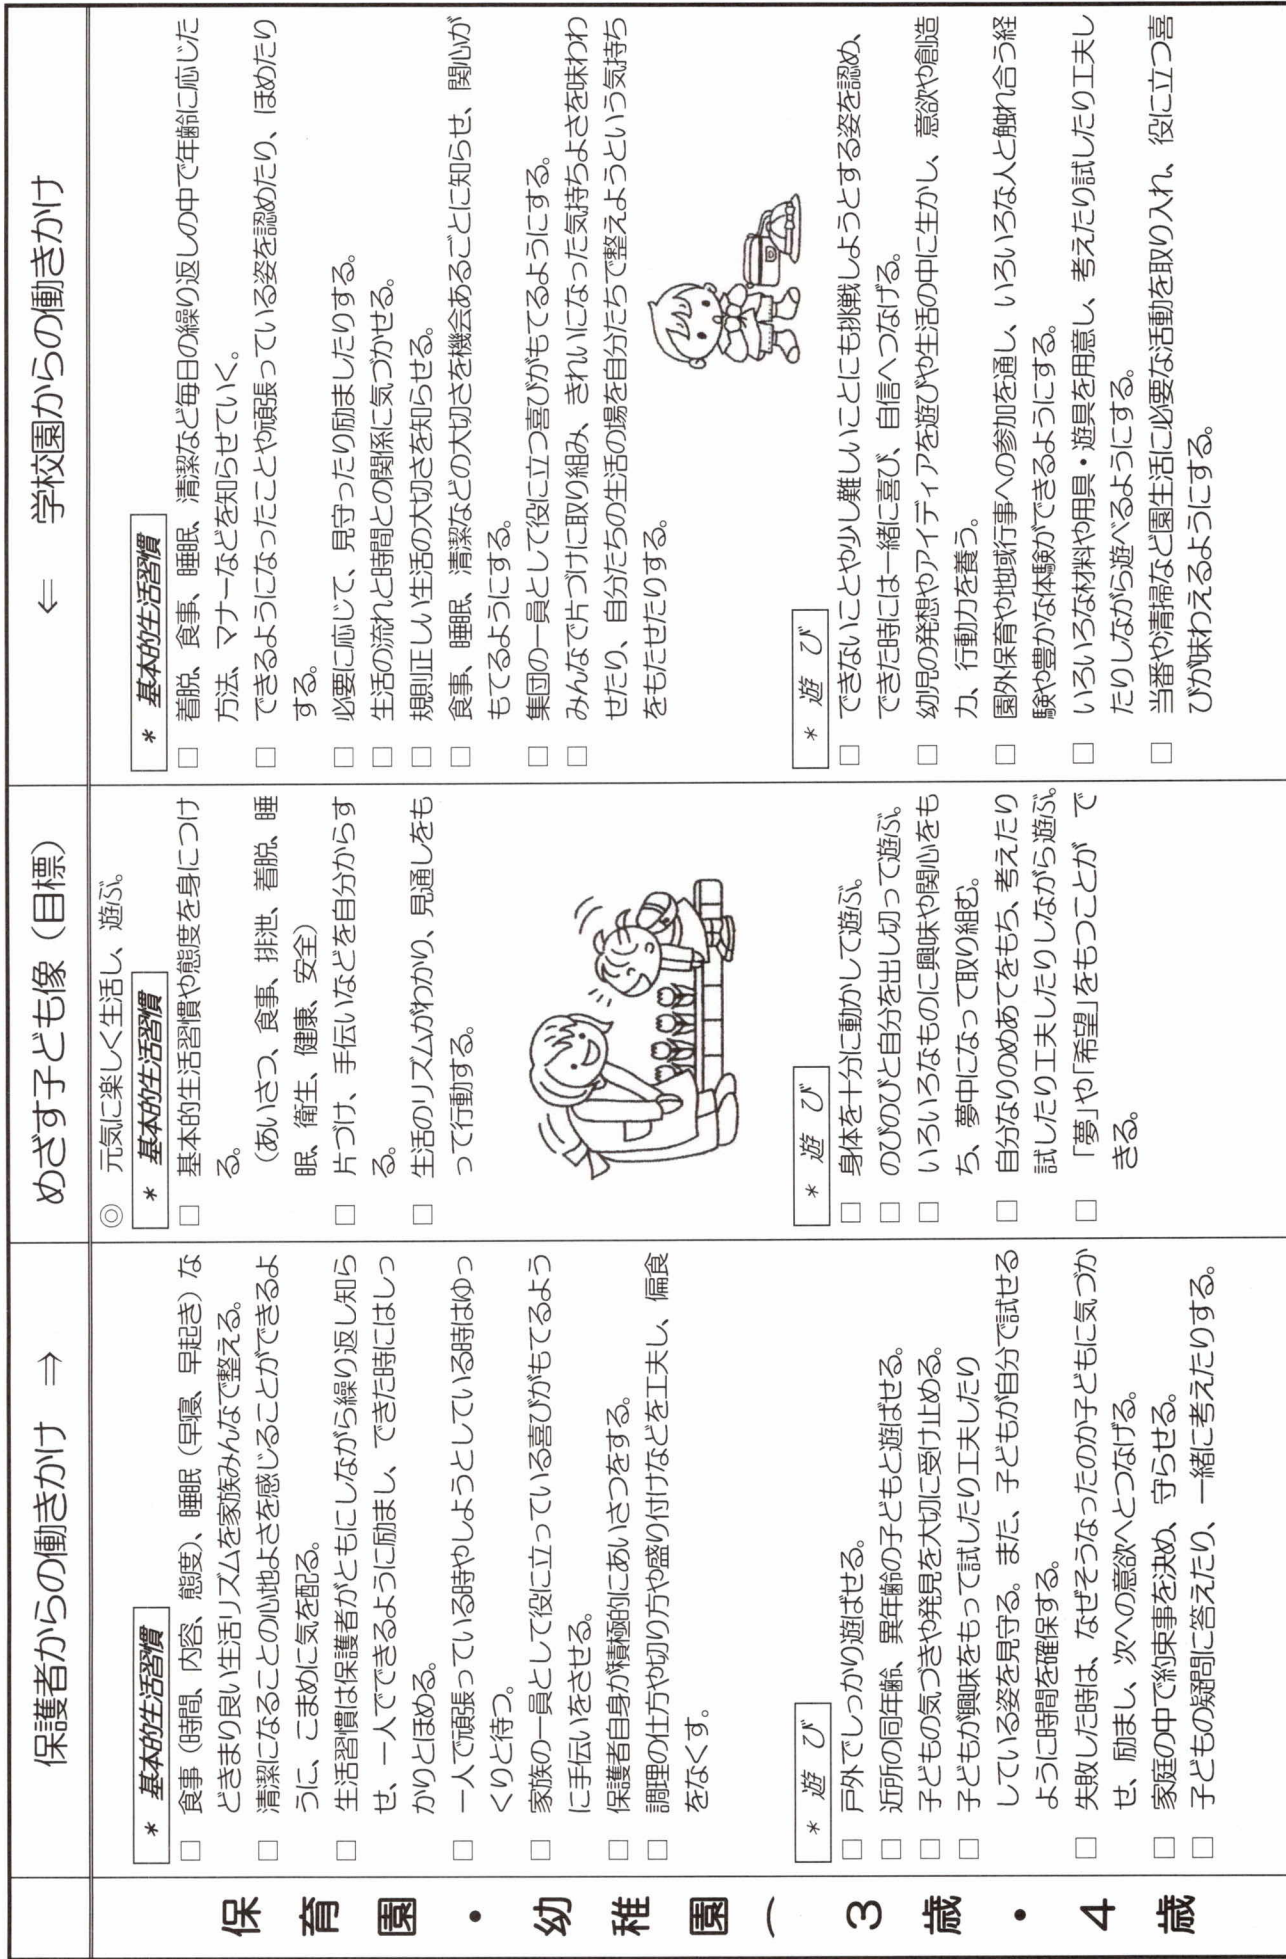 保護者からの働きかけ ⇒
めざす子ども像（目標）
⇐ 学校園からの働きかけ
保育園・幼稚園（３歳・４歳
＊ 基本的生活習慣
□ 食事（時間、内容、態度）、睡眠（早寝、早起き）な
どきまり良い生活リズムを家族みんなで整える。
□ 清潔になることの心地よさを感じることができるよ
うに、こまめに気を配る。
□ 生活習慣は保護者がともにしながら繰り返し知ら
せ、一人でできるように励まし、できた時にはしっ
かりとほめる。
□ 一人で頑張っている時やしようとしている時はゆっ
くりと待つ。
□ 家族の一員として役に立っている喜びがもてるよう
に手伝いをさせる。
□ 保護者自身が積極的にあいさつをする。
□ 調理の仕方や切り方や盛り付けなどを工夫し、偏食
をなくす。
＊ 遊 び
□ 戸外でしっかり遊ばせる。
□ 近所の同年齢、異年齢の子どもと遊ばせる。
□ 子どもの気づきや発見を大切に受け止める。
□ 子どもが興味をもって試したり工夫したり
している姿を見守る。また、子どもが自分で試せる
ように時間を確保する。
□ 失敗した時は、なぜそうなったのか子どもに気づか
せ、励まし、次への意欲へとつなげる。
□ 家庭の中で約束事を決め、守らせる。
□ 子どもの疑問に答えたり、一緒に考えたりする。
◎ 元気に楽しく生活し、遊ぶ。
＊ 基本的生活習慣
□ 基本的生活習慣や態度を身につけ
る。
（あいさつ、食事、排泄、着脱、睡
眠、衛生、健康、安全）
□ 片づけ、手伝いなどを自分からす
る。
□ 生活のリズムがわかり、見通しをも
って行動する。
＊ 遊 び
□ 身体を十分に動かして遊ぶ。
□ のびのびと自分を出し切って遊ぶ。
□ いろいろなものに興味や関心をも
ち、夢中になって取り組む。
□ 自分なりのめあてをもち、考えたり
試したり工夫したりしながら遊ぶ。
□ 「夢」や「希望」をもつことが で
きる。
＊ 基本的生活習慣
□ 着脱、食事、睡眠、清潔など毎日の繰り返しの中で年齢に応じた
方法、マナーなどを知らせていく。
□ できるようになったことや頑張っている姿を認めたり、ほめたり
する。
□ 必要に応じて、見守ったり励ましたりする。
□ 生活の流れと時間との関係に気づかせる。
□ 規則正しい生活の大切さを知らせる。
□ 食事、睡眠、清潔などの大切さを機会あるごとに知らせ、関心が
もてるようにする。
□ 集団の一員として役に立つ喜びがもてるようにする。
□ みんなで片づけに取り組み、きれいになった気持ちよさを味わわ
せたり、自分たちの生活の場を自分たちで整えようという気持ち
をもたせたりする。
＊ 遊 び
□ できないことや少し難しいことにも挑戦しようとする姿を認め、
できた時には一緒に喜び、自信へつなげる。
□ 幼児の発想やアイディアを遊びや生活の中に生かし、意欲や創造
力、行動力を養う。
□ 園外保育や地域行事への参加を通し、いろいろな人と触れ合う経
験や豊かな体験ができるようにする。
□ いろいろな材料や用具・遊具を用意し、考えたり試したり工夫し
たりしながら遊べるようにする。
□ 当番や清掃など園生活に必要な活動を取り入れ、役に立つ喜
びが味わえるようにする。